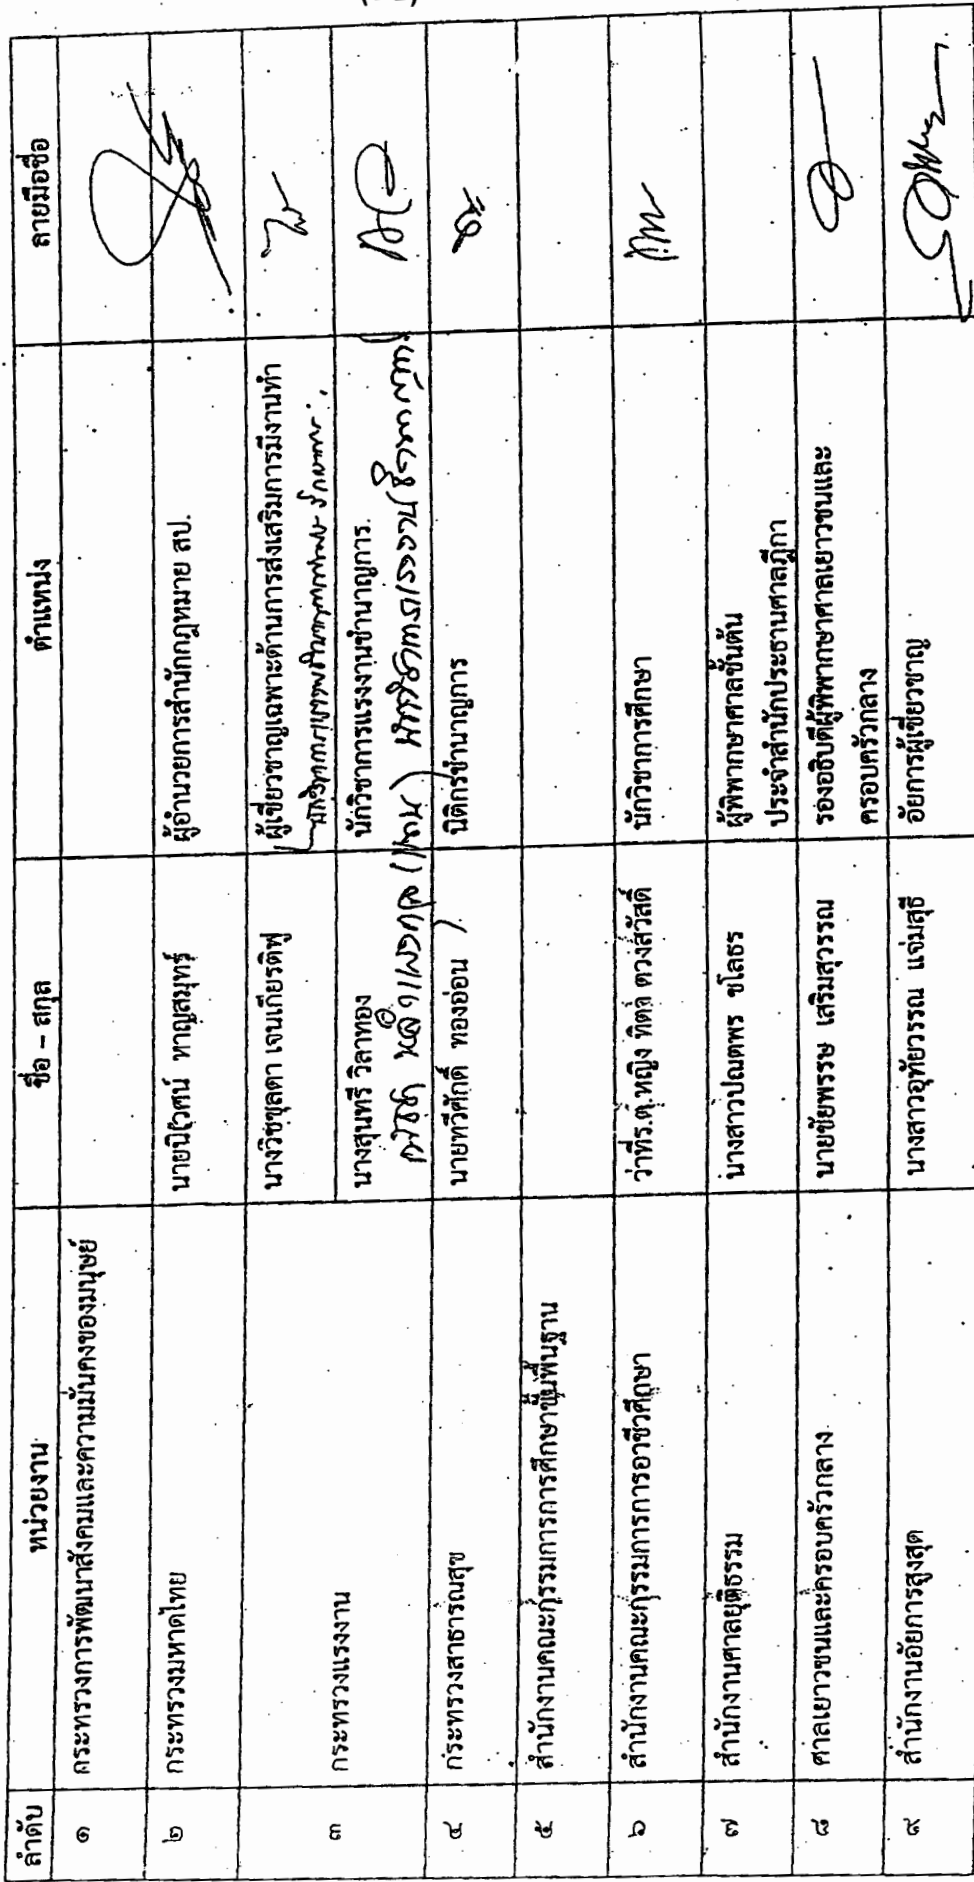 ลำดับ หน่วยงาน ชื่อ – สกุล ตำแหน่ง ลายมือชื่อ
๑ กระทรวงการพัฒนาสังคมและความมั่นคงของมนุษย์
๒ กระทรวงมหาดไทย นายนิวิศน์ หาญสมุทร์ ผู้อำนวยการสำนักกฎหมาย สป.
๓ กระทรวงแรงงาน นางวิชชุลดา เจนเกียรติฟู ผู้เชี่ยวชาญเฉพาะด้านการส่งเสริมการมีงานทำ
นางสุนทรี วิลาทอง นักวิชาการแรงงานชำนาญการ
(แทน) นักวิชาการแรงงานปฏิบัติการ
๔ กระทรวงสาธารณสุข นายทวีศักดิ์ ทองอ่อน นิติกรชำนาญการ
๕ สำนักงานคณะกรรมการการศึกษาขั้นพื้นฐาน
๖ สำนักงานคณะกรรมการการอาชีวศึกษา ว่าที่ร.ต.หญิง ทิตา ดวงสวัสดิ์ นักวิชาการศึกษา
๗ สำนักงานศาลยุติธรรม นางสาวปณตพร ชโลธร ผู้พิพากษาศาลชั้นต้น
ประจำสำนักประธานศาลฎีกา
๘ ศาลเยาวชนและครอบครัวกลาง นายชัยพรรษ เสริมสุวรรณ รองอธิบดีผู้พิพากษาศาลเยาวชนและ
ครอบครัวกลาง
๙ สำนักงานอัยการสูงสุด นางสาวอุทัยวรรณ แจ่มสุธี อัยการผู้เชี่ยวชาญ